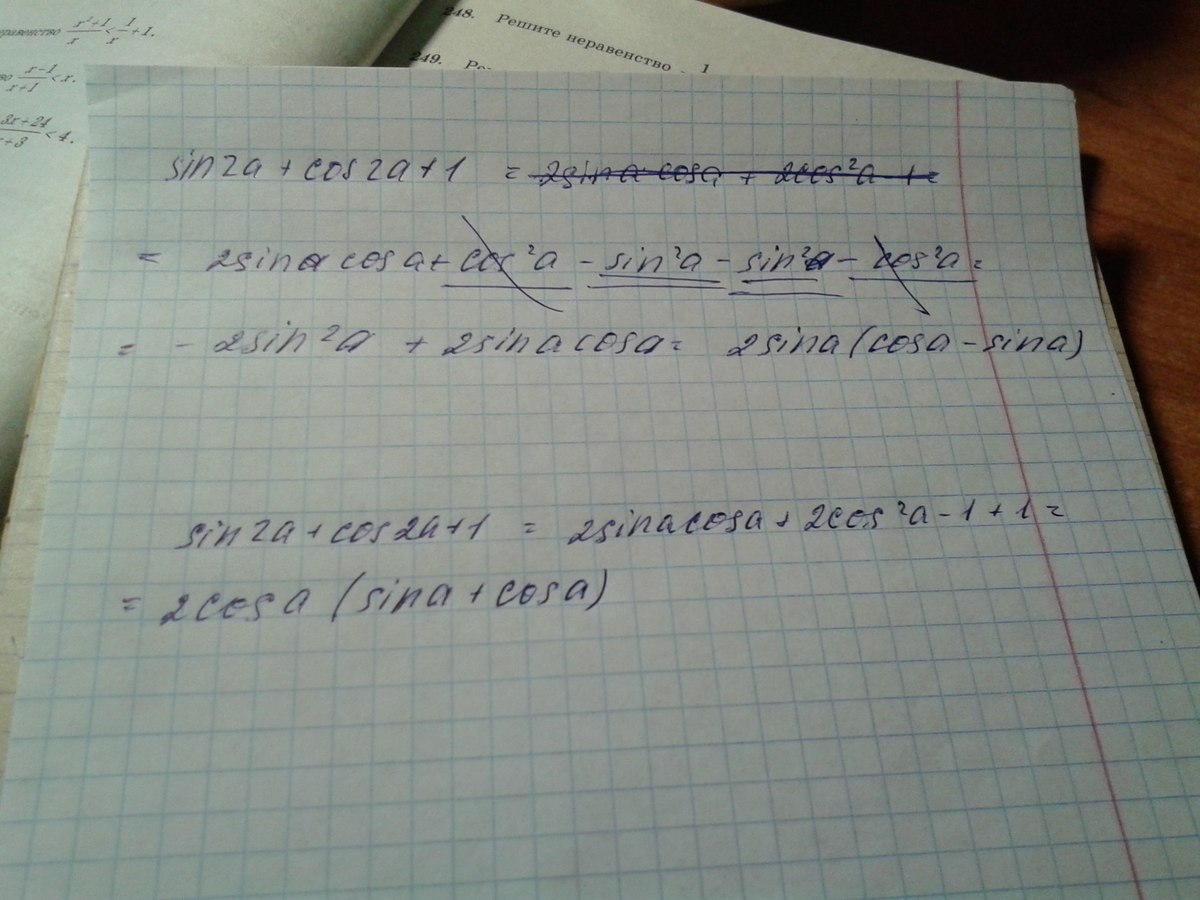 неравенство (x²+1)/x < 1/x + 1.
(x−1)/(x+1) < x.
3x+24
< 4.
248. Решите неравенство
1
249.
sin2a + cos2a + 1 = 2sina cosa + 2cos²a - 1 =
= 2sina cosa + cos²a - sin²a - sin²a - cos²a =
= - 2sin²a + 2sina cosa = 2sina (cosa - sina)
sin2a + cos2a + 1 = 2sina cosa + 2cos²a - 1 + 1 =
= 2cosa (sina + cosa)